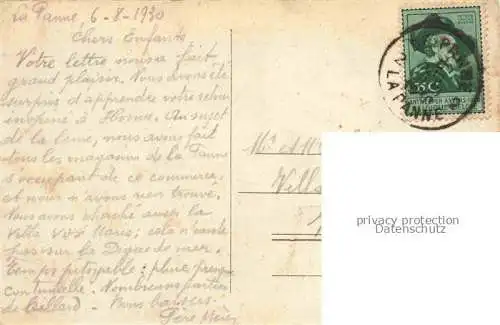 La Panne 6-8-1930
Chers Enfants
Votre lettre nous a fait
grand plaisir. Nous avons été
surpris d'apprendre votre retour
inopiné à Hornu. Au sujet
de la laine, nous avons fait
tous les magasins de La Panne
s'occupant de ce commerce
et nous n'avons rien trouvé.
Nous avons cherché aussi la
Villa
sur la Digue de mer.
Temps pitoyable: pluie presque
continuelle. Nombreuses parties
de billard. Bons baisers.
Père
Mr et M
Vill
35C
LA PANNE
privacy protection
Datenschutz